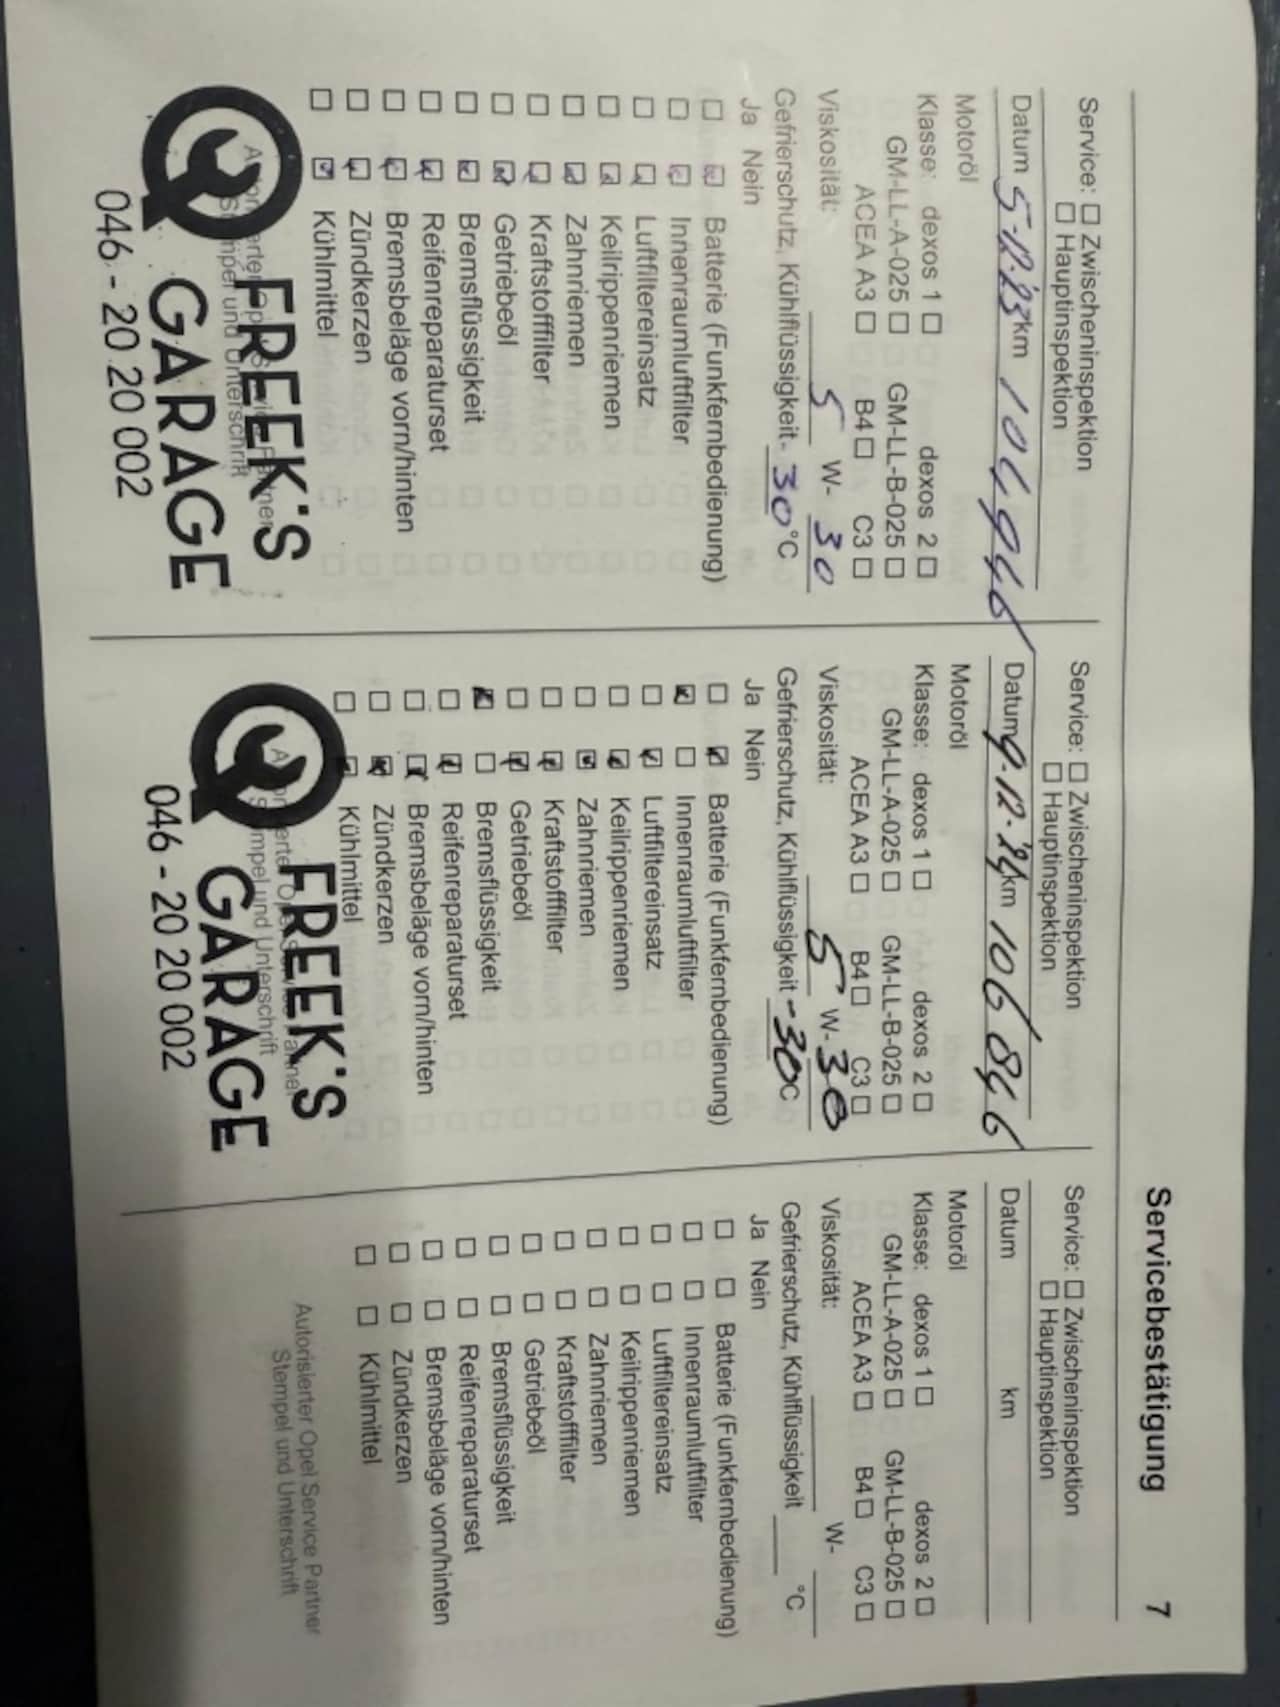 Servicebestätigung 7
Service: ☐ Zwischeninspektion
☐ Hauptinspektion
Datum 5-12-'23 km 104946
Motoröl
Klasse: dexos 1 ☐ dexos 2 ☐
GM-LL-A-025 ☐ GM-LL-B-025 ☐
ACEA A3 ☐ B4 ☐ C3 ☐
Viskosität: 5 W- 30
Gefrierschutz, Kühlflüssigkeit - 30 °C
Ja Nein
☐ ☑ Batterie (Funkfernbedienung)
☐ ☑ Innenraumluftfilter
☐ ☑ Luftfiltereinsatz
☐ ☑ Keilrippenriemen
☐ ☑ Zahnriemen
☐ ☑ Kraftstofffilter
☐ ☑ Getriebeöl
☐ ☑ Bremsflüssigkeit
☐ ☑ Reifenreparaturset
☐ ☑ Bremsbeläge vorn/hinten
☐ ☑ Zündkerzen
☐ ☑ Kühlmittel
FREEK'S
GARAGE
046 - 20 20 002
Service: ☐ Zwischeninspektion
☐ Hauptinspektion
Datum 9-12-'24 km 106846
Motoröl
Klasse: dexos 1 ☐ dexos 2 ☐
GM-LL-A-025 ☐ GM-LL-B-025 ☐
ACEA A3 ☐ B4 ☐ C3 ☐
Viskosität: 5 W- 30
Gefrierschutz, Kühlflüssigkeit -30°C
Ja Nein
☐ ☑ Batterie (Funkfernbedienung)
☑ ☐ Innenraumluftfilter
☐ ☑ Luftfiltereinsatz
☐ ☑ Keilrippenriemen
☐ ☑ Zahnriemen
☐ ☑ Kraftstofffilter
☐ ☑ Getriebeöl
☑ ☐ Bremsflüssigkeit
☐ ☑ Reifenreparaturset
☐ ☑ Bremsbeläge vorn/hinten
☐ ☑ Zündkerzen
☐ ☑ Kühlmittel
FREEK'S
GARAGE
046 - 20 20 002
Service: ☐ Zwischeninspektion
☐ Hauptinspektion
Datum km
Motoröl
Klasse: dexos 1 ☐ dexos 2 ☐
GM-LL-A-025 ☐ GM-LL-B-025 ☐
ACEA A3 ☐ B4 ☐ C3 ☐
Viskosität: W-
Gefrierschutz, Kühlflüssigkeit °C
Ja Nein
☐ ☐ Batterie (Funkfernbedienung)
☐ ☐ Innenraumluftfilter
☐ ☐ Luftfiltereinsatz
☐ ☐ Keilrippenriemen
☐ ☐ Zahnriemen
☐ ☐ Kraftstofffilter
☐ ☐ Getriebeöl
☐ ☐ Bremsflüssigkeit
☐ ☐ Reifenreparaturset
☐ ☐ Bremsbeläge vorn/hinten
☐ ☐ Zündkerzen
☐ ☐ Kühlmittel
Autorisierter Opel Service Partner
Stempel und Unterschrift